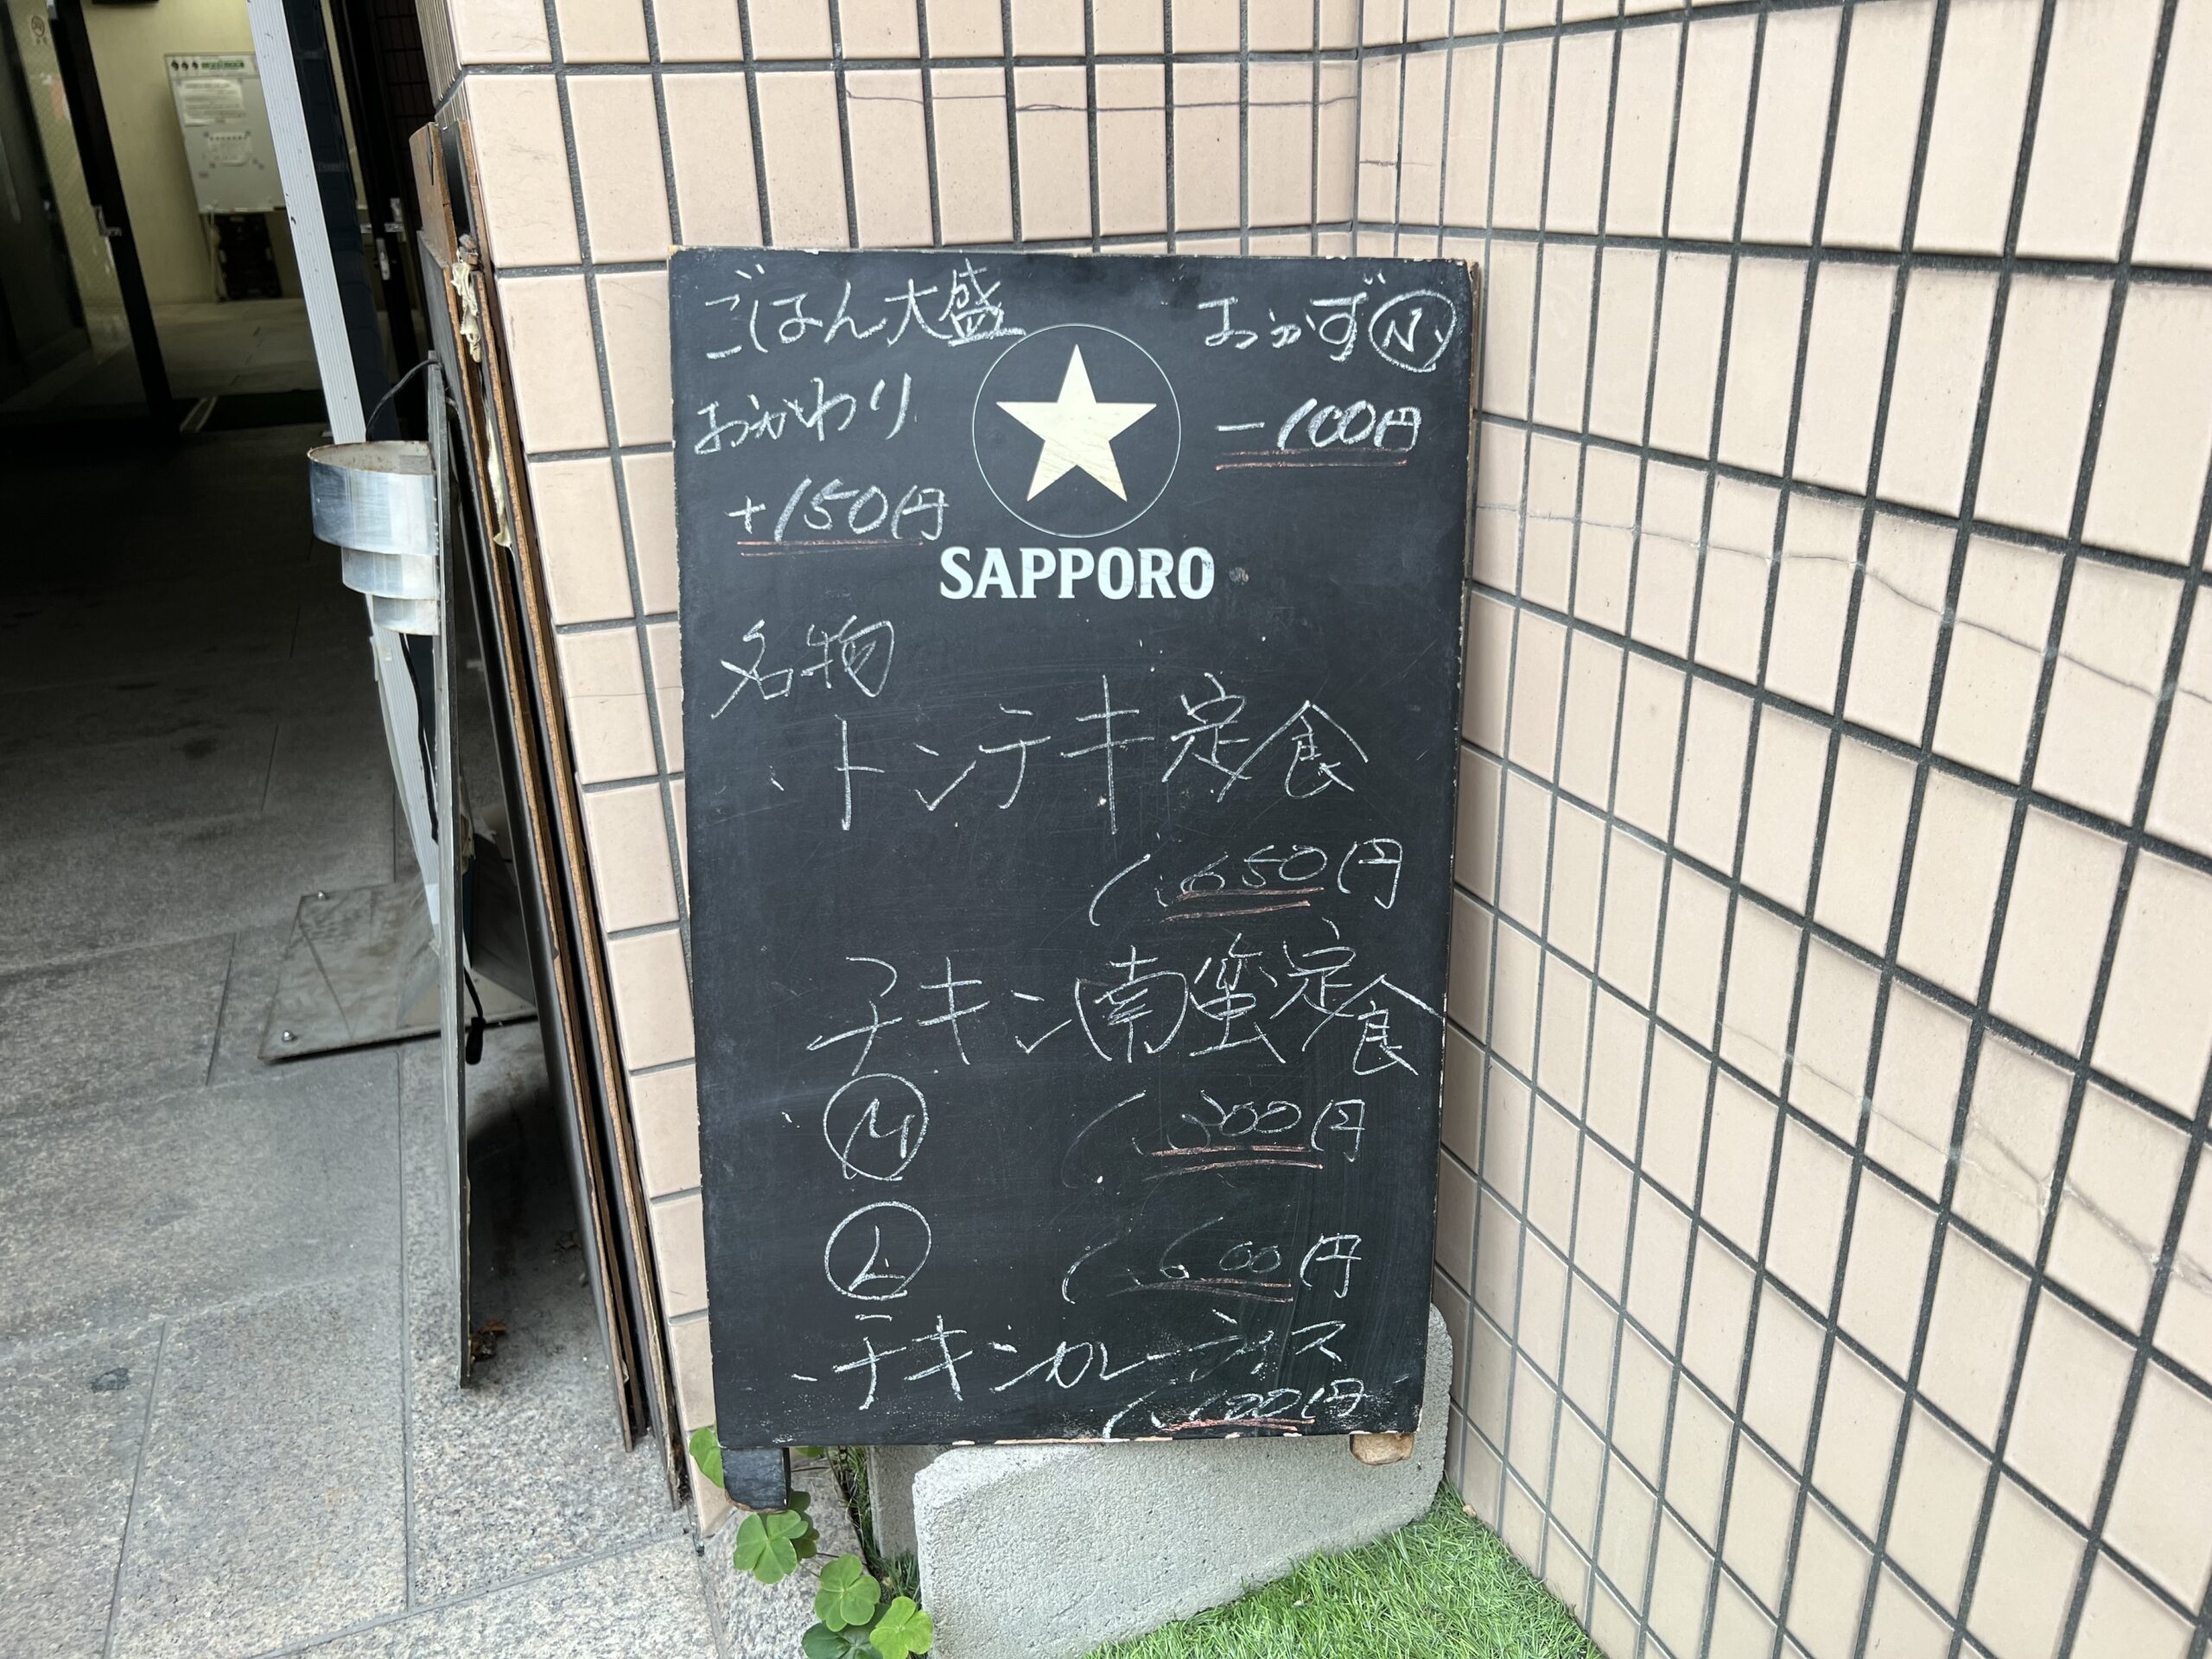 ごはん大盛
おかわり
+150円
おかず小
-100円
SAPPORO
名物
・トンテキ定食
1,650円
チキン南蛮定食
・Ⓜ
1,300円
Ⓛ
1,600円
・チキンカレーライス
1,100円